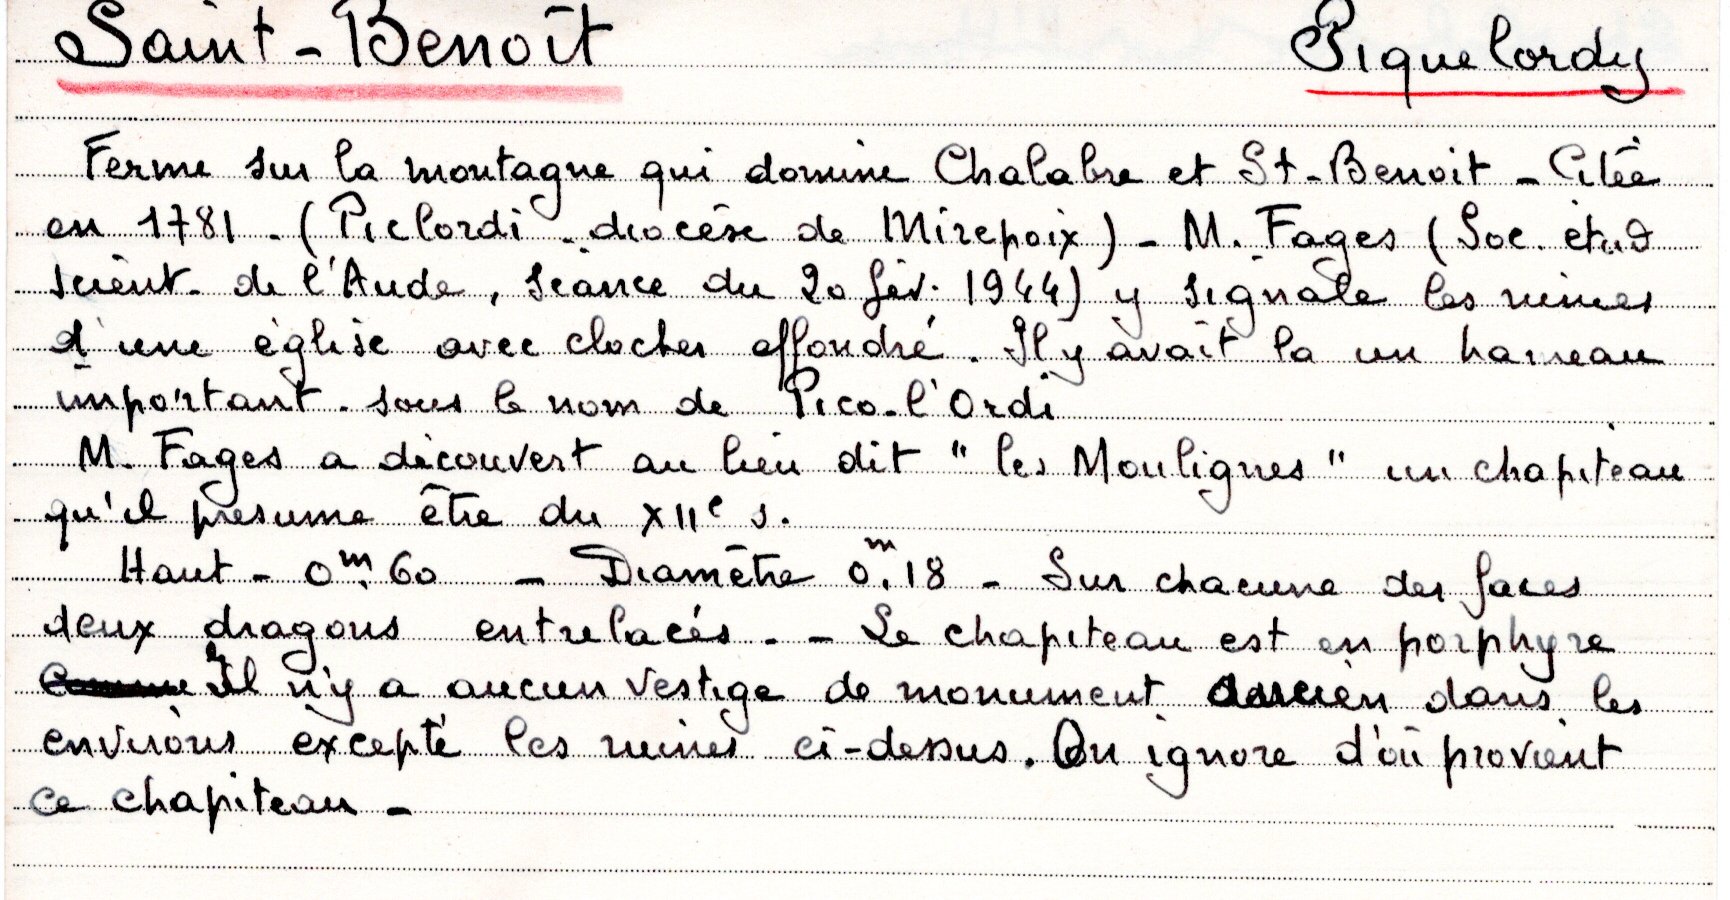 Saint-Benoît Piquelordy
Ferme sur la montagne qui domine Chalabre et St-Benoit - Citée
en 1781 - (Piclordi - diocèse de Mirepoix) - M. Fages (Soc. étud
scient. de l'Aude, séance du 20 fév. 1944) y signale les ruines
d'une église avec clocher effondré. Il y avait la un hameau
important. sous le nom de Pico-l'Ordi
M. Fages a découvert au lieu dit "les Moulignes" un chapiteau
qu'il presume être du XIIe s.
Haut - 0m.60 - Diamètre 0m.18 - Sur chacune des faces
deux dragons entrelacés. - Le chapiteau est en porphyre
Il n'y a aucun vestige de monument ancien dans les
environs excepté les ruines ci-dessus. On ignore d'où provient
ce chapiteau -